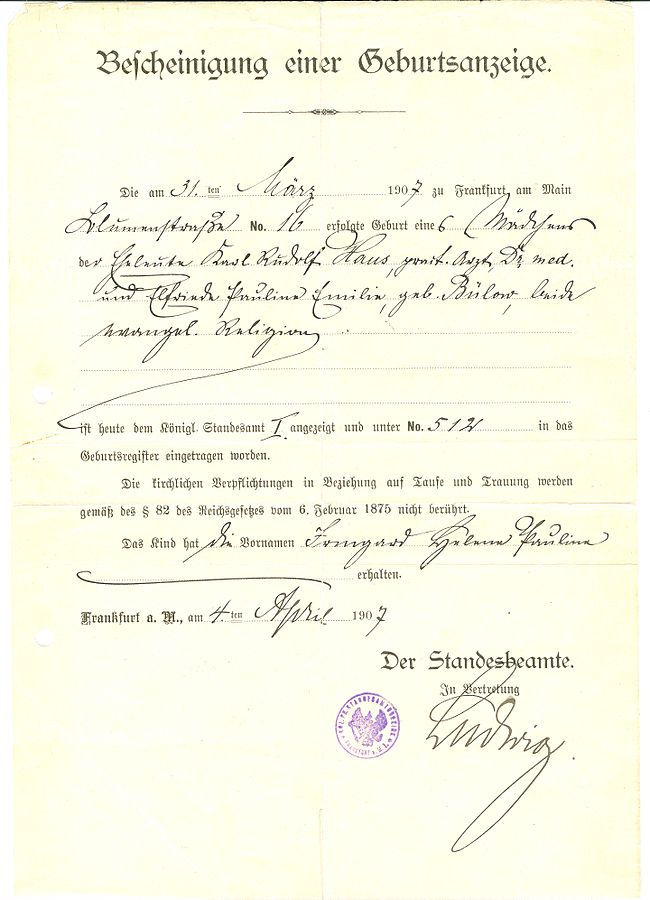 Bescheinigung einer Geburtsanzeige.
Die am 31. ten März 1907 zu Frankfurt am Main
Blumenstraße No. 16 erfolgte Geburt eines Mädchens
der Eheleute Karl Rudolf Haus, prakt. Arzt, Dr. med.
und Elfriede Pauline Emilie, geb. Bülow, beide
evangel. Religion
ist heute dem Königl. Standesamt I angezeigt und unter No. 512 in das
Geburtsregister eingetragen worden.
Die kirchlichen Verpflichtungen in Beziehung auf Taufe und Trauung werden
gemäß des § 82 des Reichsgesetzes vom 6. Februar 1875 nicht berührt.
Das Kind hat die Vornamen Irmgard Helene Pauline
erhalten.
Frankfurt a. M., am 4. ten April 1907
Der Standesbeamte.
In Vertretung
Ludwig